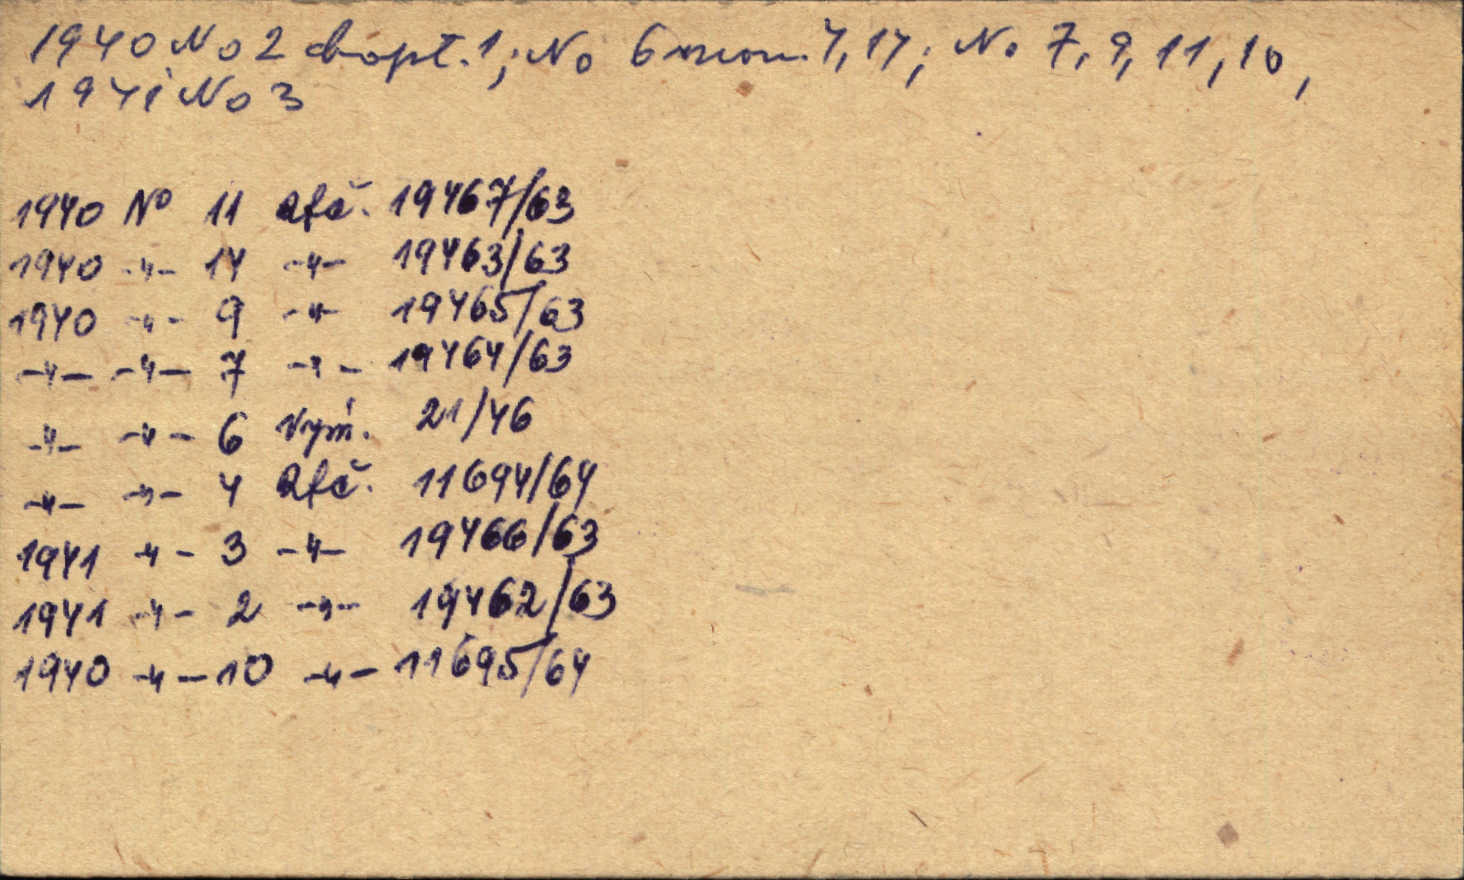 1940 No 2 dopt. 1; No 6 mom. 4, 14; No 7, 9, 11, 10,
1941 No 3
1940 No 11 afč. 19467/63
1940 -"- 14 -"- 19463/63
1940 -"- 9 -"- 19465/63
-"- -"- 7 -"- 19464/63
-"- -"- 6 Vým. 21/46
-"- -"- 4 afč. 11694/64
1941 -"- 3 -"- 19466/63
1941 -"- 2 -"- 19462/63
1940 -"- 10 -"- 11695/64